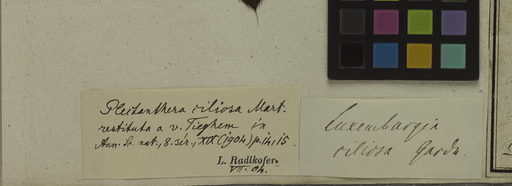 Plectanthera ciliosa Mart.
restituta a v. Tieghem in
Ann. Sc. nat., 8. sér., XIX (1904) p. 14, 15.
L. Radlkofer.
VII. 04.
Luxemburgia
ciliosa Gardn.